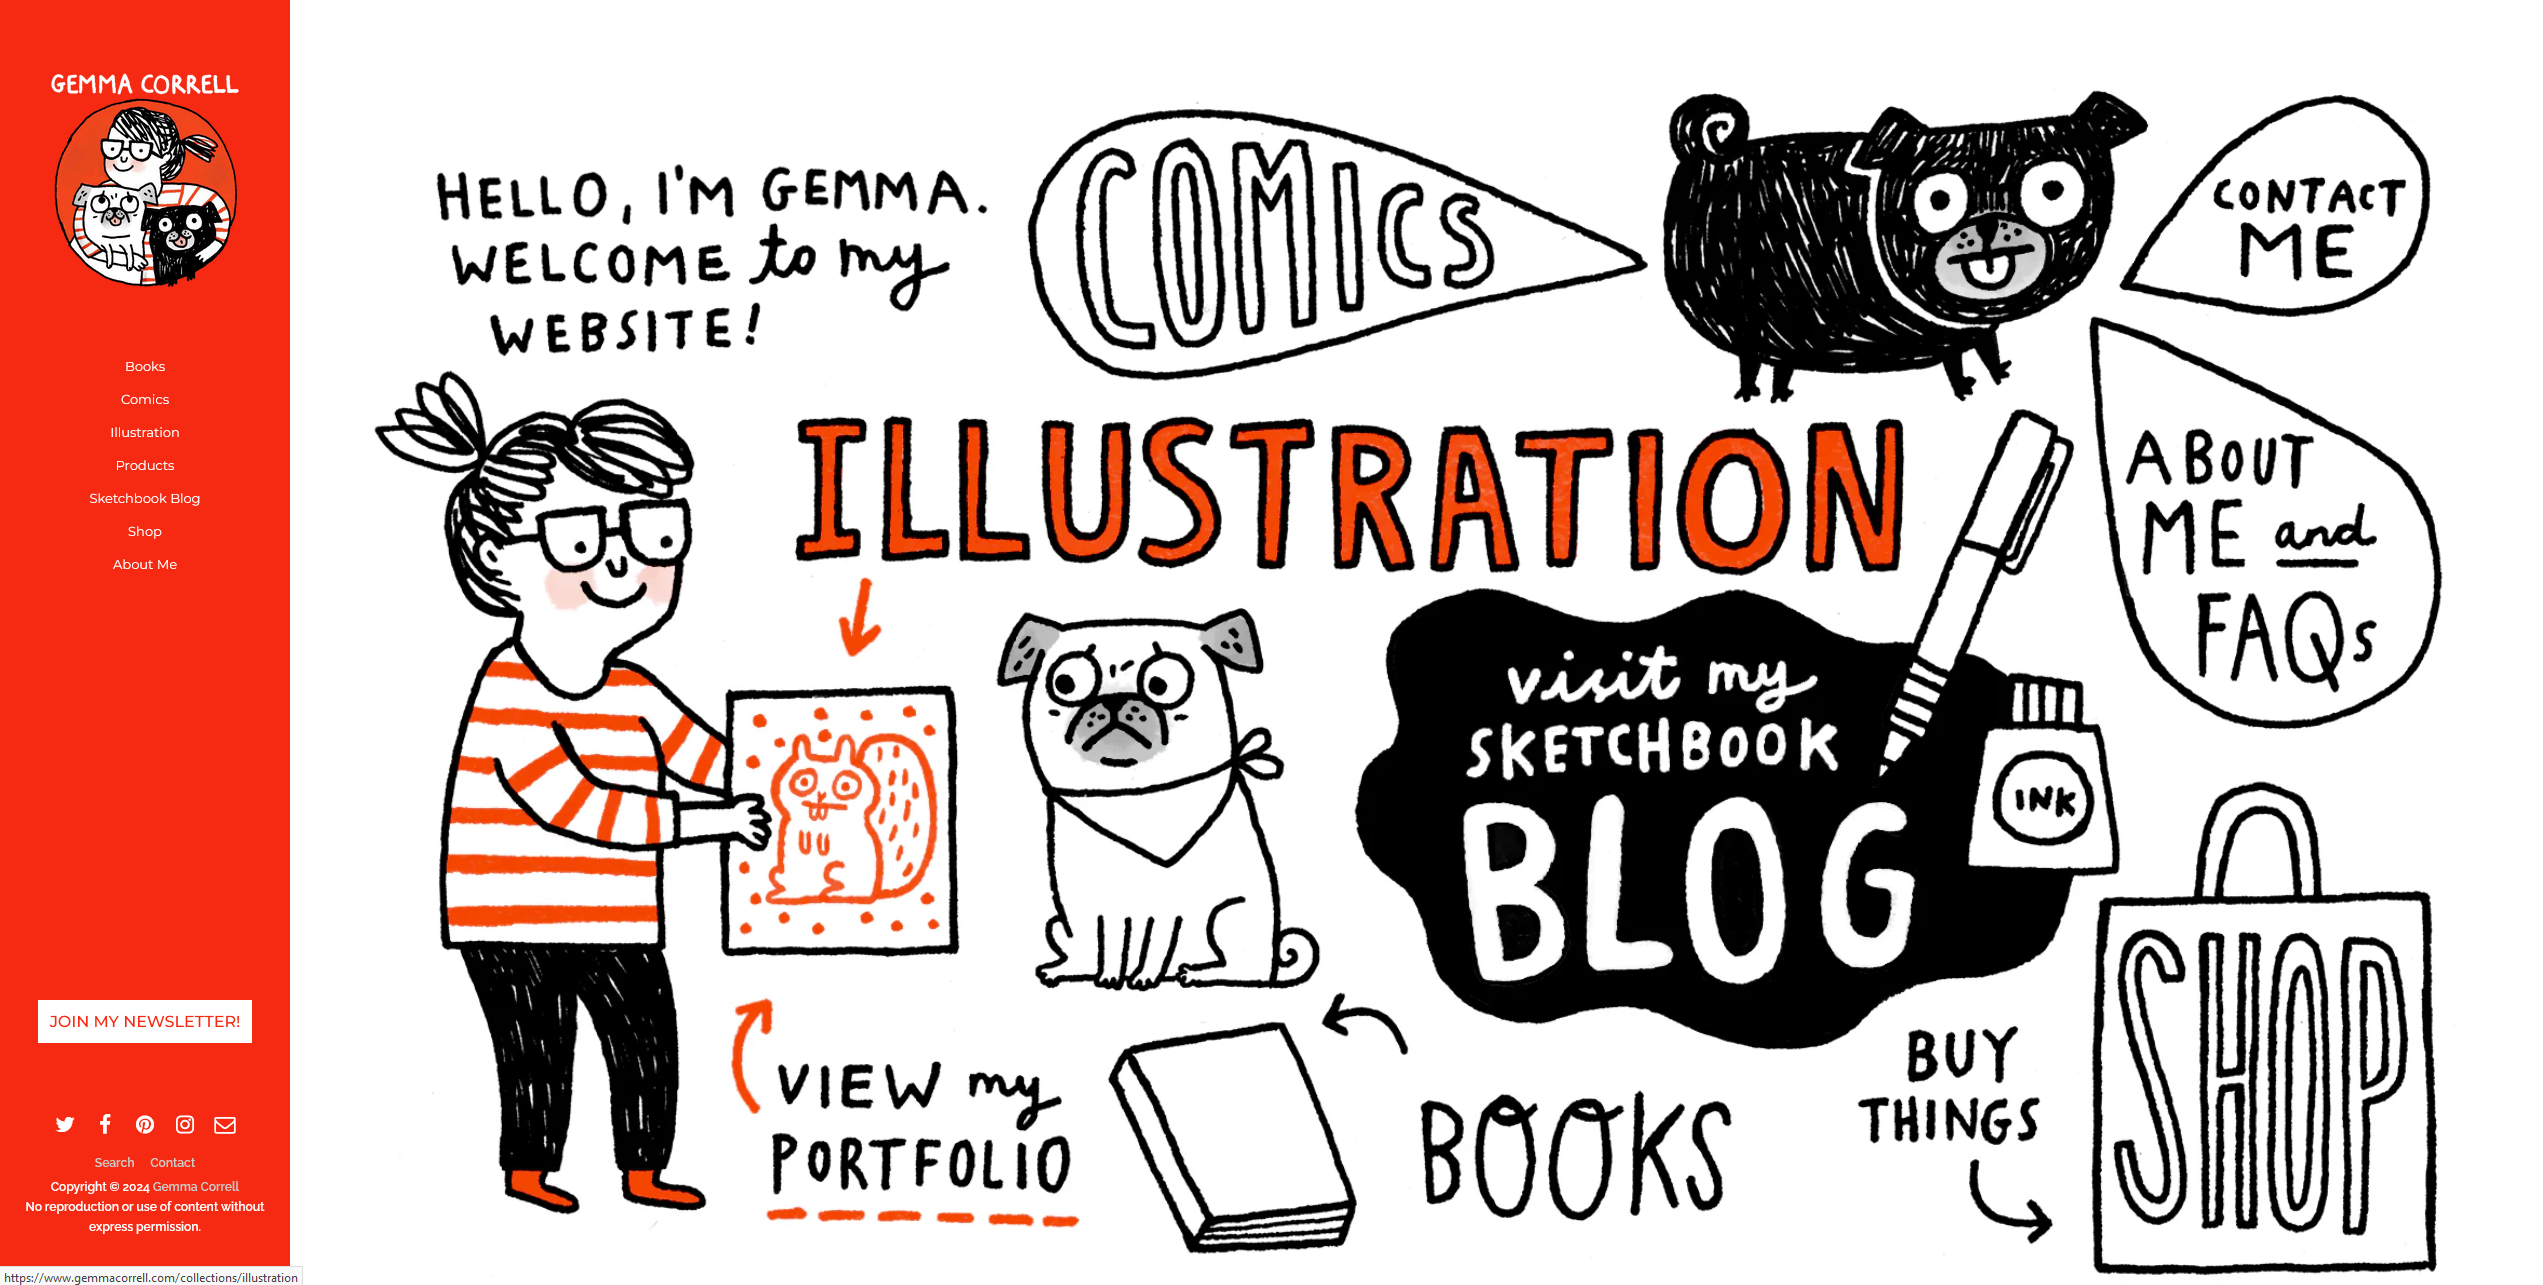 GEMMA CORRELL
Books
Comics
Illustration
Products
Sketchbook Blog
Shop
About Me
JOIN MY NEWSLETTER!
Search Contact
Copyright © 2024 Gemma Correll
No reproduction or use of content without
express permission.
https://www.gemmacorrell.com/collections/illustration
HELLO, I'M GEMMA.
WELCOME to my
WEBSITE!
COMICS
CONTACT
ME
ILLUSTRATION
ABOUT
ME and
FAQs
visit my
SKETCHBOOK
BLOG
INK
VIEW my
PORTFOLIO
BOOKS
BUY
THINGS
SHOP